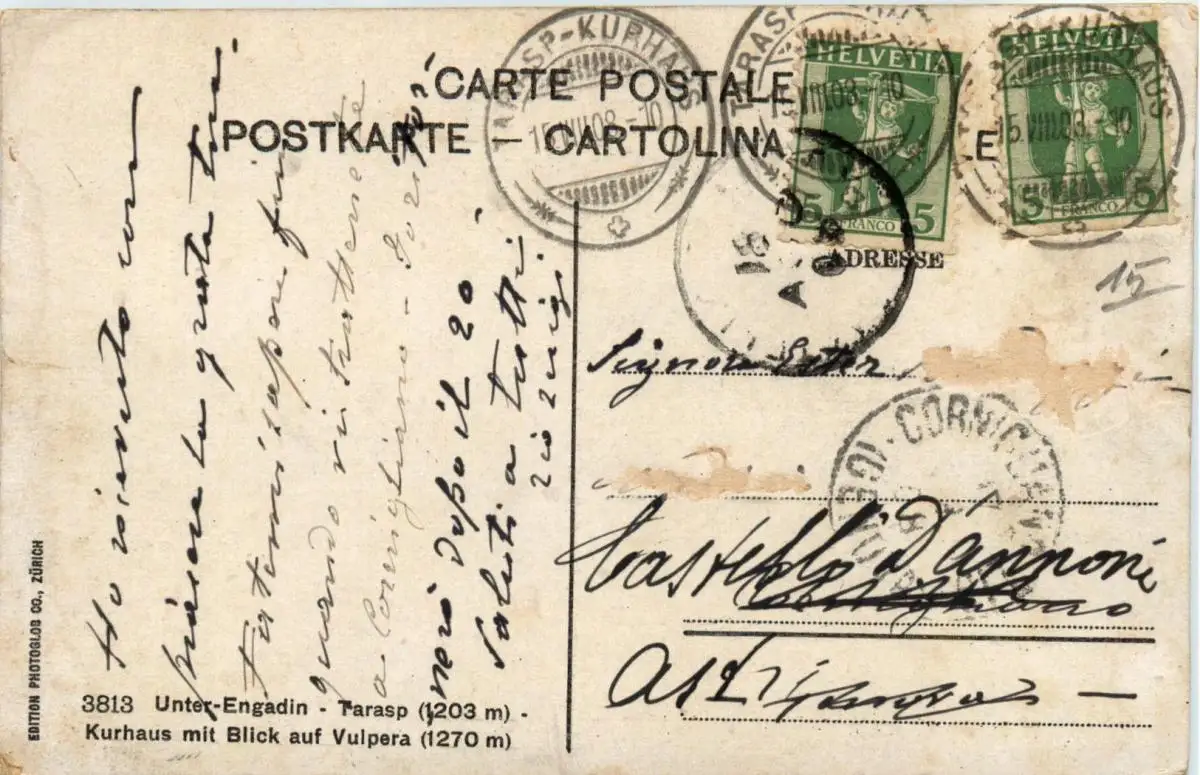 CARTE POSTALE
POSTKARTE — CARTOLINA LE
TARASP-KURHAUS
15.VIII.08-10
TARASP-KURHAUS
VIII.08-10
HELVETIA
5 5
FRANCO
KURHAUS
15.VIII.08-10
HELVETIA
5 5
FRANCO
18
08
ADRESSE
15
Ho ricevuto con
piacere la grata tua
Fatemi sapere fin
quando vi trattenete
a Cornigliano - Tornerò
dopo il 20
Saluti a tutti
zio Luigi
Ester
CORNIGLIANO
Castello D'annone
Asti
3813 Unter-Engadin - Tarasp (1203 m) -
Kurhaus mit Blick auf Vulpera (1270 m)
EDITION PHOTOGLOB CO., ZÜRICH